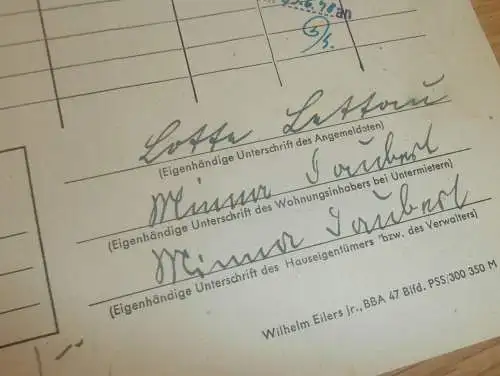 an
Lotte Lettau
(Eigenhändige Unterschrift des Angemeldeten)
Minna Taubert
(Eigenhändige Unterschrift des Wohnungsinhabers bei Untermietern)
Minna Taubert
(Eigenhändige Unterschrift des Hauseigentümers bzw. des Verwalters)
Wilhelm Eilers jr., BBA 47 Blfd. PSS/300 350 M